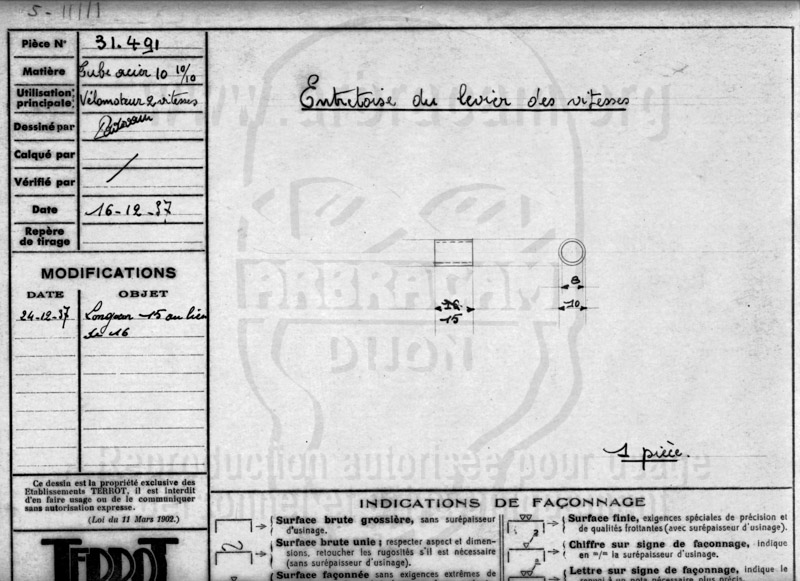 5-11/11
Pièce N° 31.491
Matière Tube acier 10 10/10
Utilisation principale Vélomoteur 2 vitesses
Dessiné par
Calqué par
Vérifié par
Date 16-12-37
Repère de tirage
MODIFICATIONS
DATE OBJET
24-12-37 Longueur 15 au lieu
de 16
Entretoise du levier des vitesses
www.arbracam.org
8
16 10
15
ARBRACAM
DIJON
1 pièce.
Reproduction autorisée pour usage
Ce dessin est la propriété exclusive des
Etablissements TERROT, il est interdit
d'en faire usage ou de le communiquer
sans autorisation expresse.
(Loi du 11 Mars 1902.)
TERROT
INDICATIONS DE FAÇONNAGE
Surface brute grossière, sans surépaisseur
d'usinage.
Surface brute unie ; respecter aspect et dimen-
sions, retoucher les rugosités s'il est nécessaire
(sans surépaisseur d'usinage).
Surface façonnée sans exigences extrêmes de
Surface finie, exigences spéciales de précision et
de qualités frottantes (avec surépaisseur d'usinage).
2
Chiffre sur signe de faconnage, indique
en m/m la surépaisseur d'usinage.
Lettre sur signe de façonnage, indique le
renvoi à un nota nécessaire plus précis.